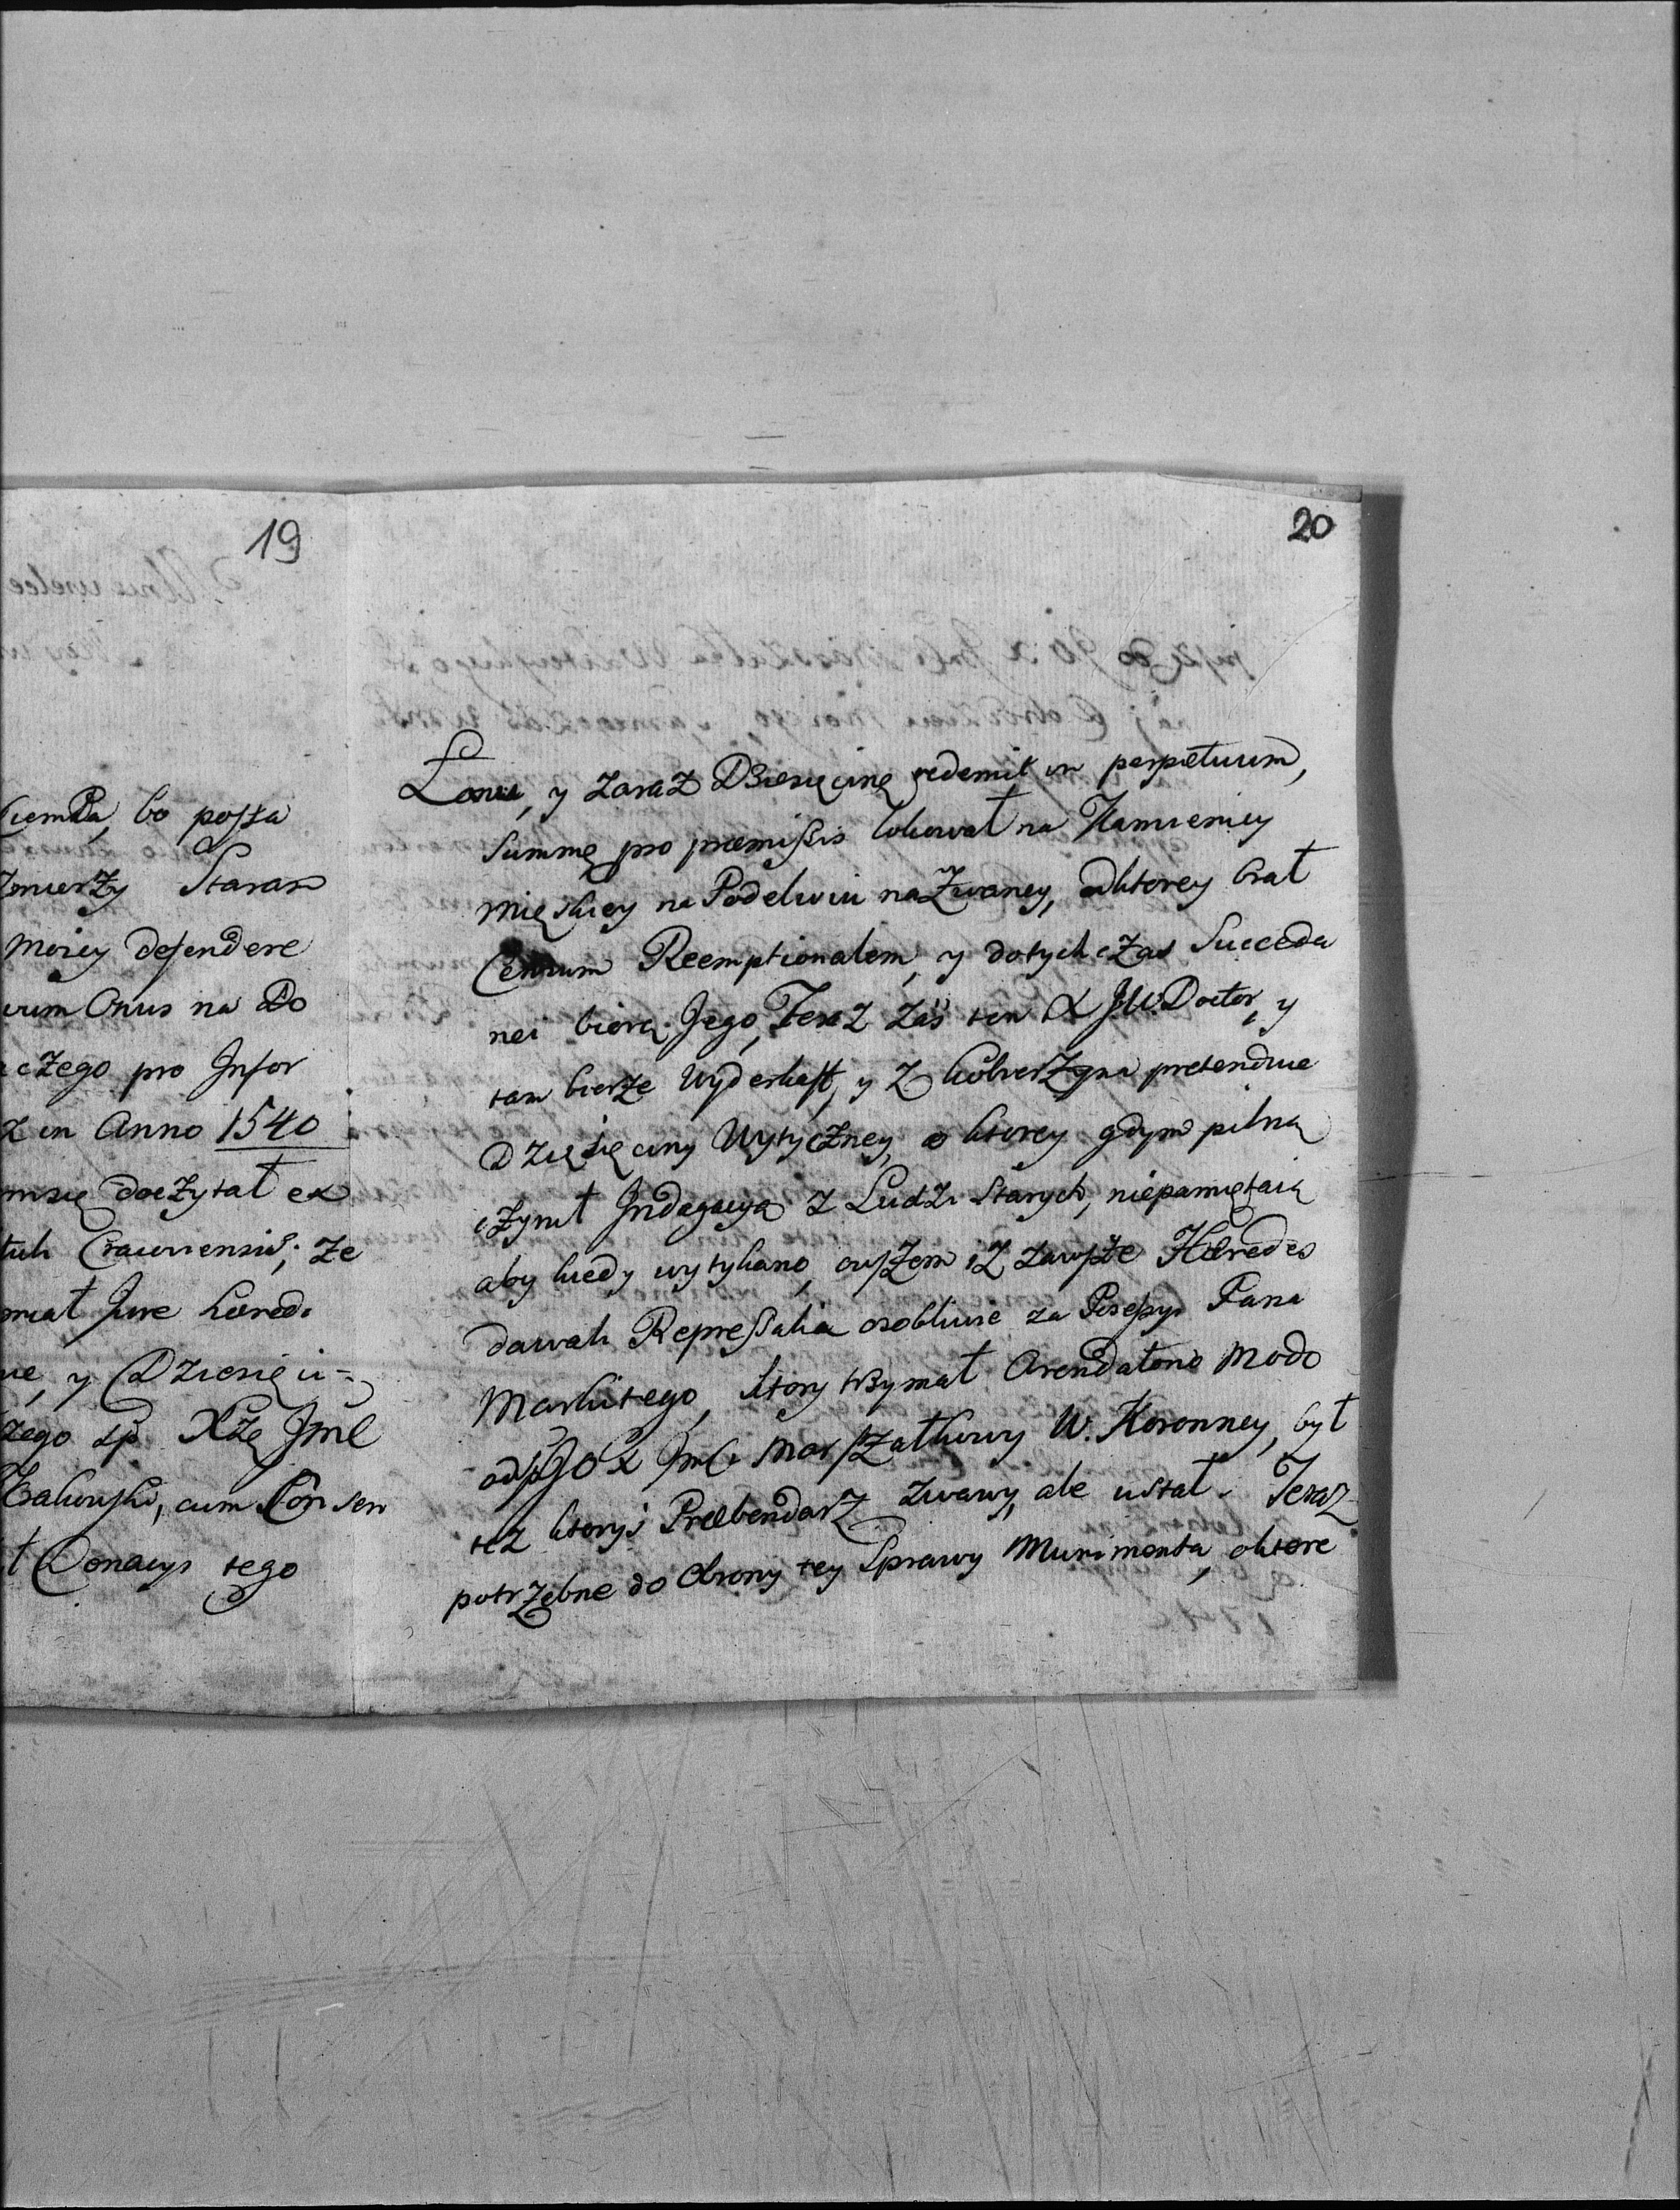 19
bo poszła
Staram
moiey defendere
Onus na Do
czego pro Infor
in Anno 1540
doczytał ex
Craconiensis; ze
miał Jure haered:
y Dziesięci=
zego śp Xże Jmć
Załuski, cum Consen
Donacyi tego
20
y zaraz Dziesięcinę redemit in perpetuum,
Summę pro praemissis lokował na Kamienicy
Mieyskiey na Podelwiu nazwaney, od ktorey brał
Censum Reemptionalem, y dotychczas Succeda
nei biorą Jego, Teraz zaś ten X JW. Doctor, y
tam bierze Wyderkaff, y z Kobierzyna pretenduie
Dziesięciny Wytyczney, o ktorey gdym pilną
czynił Indagacyą z Ludzi Starych, niepamiętaią
aby kiedy wytykano, owszem iz zawsze Haeredes
dawali Repressalia osobliwie za Posessyi Pana
Markiego, ktory trzymał Arendatorio modo
od JO X Jmć Marszałkowy W. Koronney, był
tez ktoryś Praebendarz zwawy, ale ustał. Teraz
potrzebne do Obrony tey Sprawy Munimenta, oktore